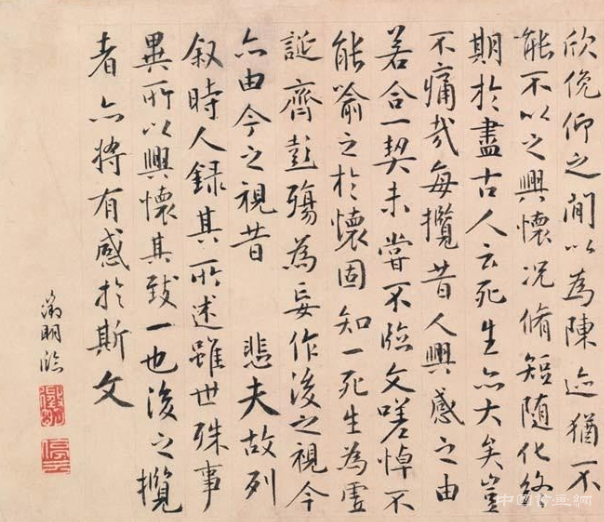 欣俛仰之閒以為陳迹猶不
能不以之興懷况脩短隨化終
期於盡古人云死生亦大矣豈
不痛哉每攬昔人興感之由
若合一契未嘗不臨文嗟悼不
能喻之於懷固知一死生為虛
誕齊彭殤為妄作後之視今
亦由今之視昔 悲夫故列
叙時人録其所述雖世殊事
異所以興懷其致一也後之攬
者亦將有感於斯文
徵明臨